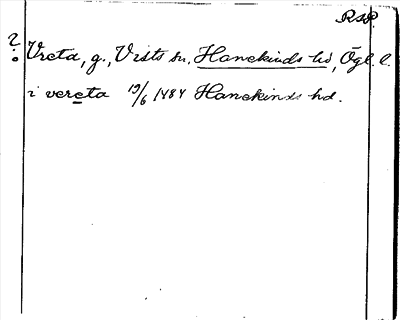 RAP.
? Vreta, g., Vists sn, Hanekinds hd, Ögl. l.
i vereta 19/6 1484 Hanekinds hd.